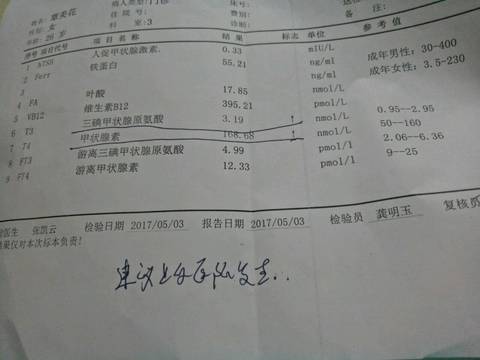 姓名: 章美花 病人类型: 门诊 床号:
性别: 女 住院号: 费别: 备注:
年龄: 26 岁 科室: 3 诊断:
序号 项目代号 项目名称 结果 标志 单位 参考值
1 ATSH 人促甲状腺激素. 0.33 mIU/L
2 Ferr 铁蛋白 55.21 ng/ml 成年男性: 30-400
ng/ml 成年女性: 3.5-230
4 FA 叶酸 17.85 nmol/L
5 VB12 维生素B12 395.21 pmol/L
6 T3 三碘甲状腺原氨酸 3.19 ↑ nmol/L 0.95--2.95
7 T4 甲状腺素 168.68 ↑ nmol/L 50--160
8 FT3 游离三碘甲状腺原氨酸 4.99 pmol/l 2.06--6.36
9 FT4 游离甲状腺素 12.33 pmol/l 9--25
医生 张凯云 检验日期 2017/05/03 报告日期 2017/05/03 检验员 龚明玉 复核员
结果仅对本次标本负责!
建议上级医院